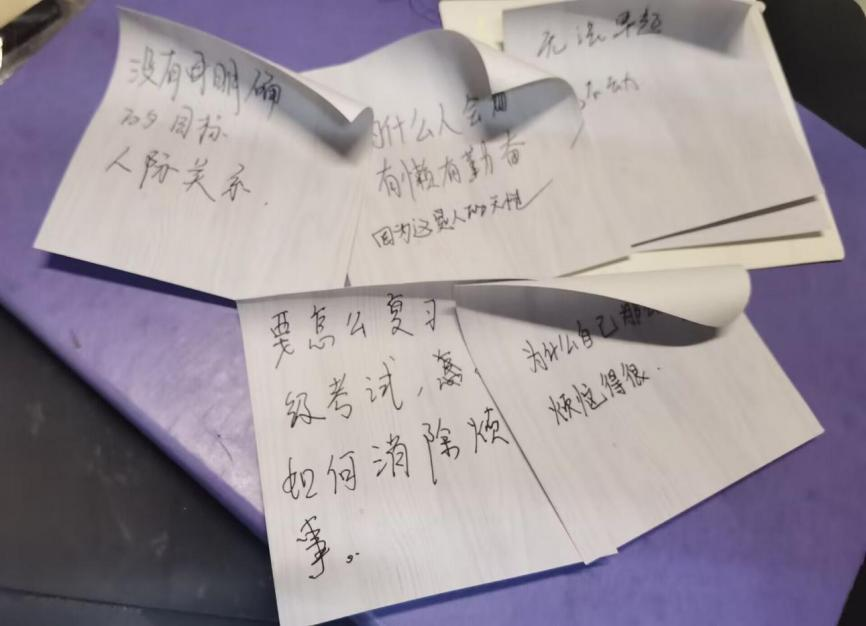 没有可明确
的目标
人际关系.
为什么人会
有懒有勤奋
因为这是人的天性
无法早起
运动
要怎么复习
级考试,
如何消除烦
事。
为什么自己那
烦恼得很.